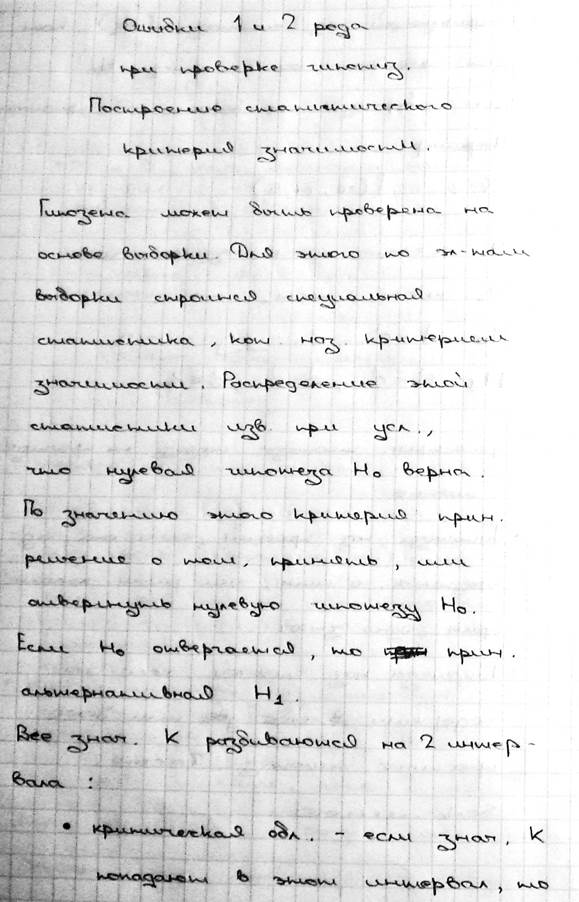 Ошибки 1 и 2 рода
при проверке гипотиз.
Построение статистического
критерия значимости.
Гипозета может быть проверена на
основе выборки. Для этого по эл-там
выборки строится специальная
статистика, кот. наз. критерием
значимости. Распределение этой
статистики изв. при усл.,
что нулевая гипотеза H₀ верна.
По значению этого критерия прин.
решение о том, принять, или
отвергнуть нулевую гипотезу H₀.
Если H₀ отвергается, то прин.
альтернативная H₁.
Все знач. К разбиваются на 2 интер-
вала :
• критическая обл. - если знач. К
попадают в этот интервал, то